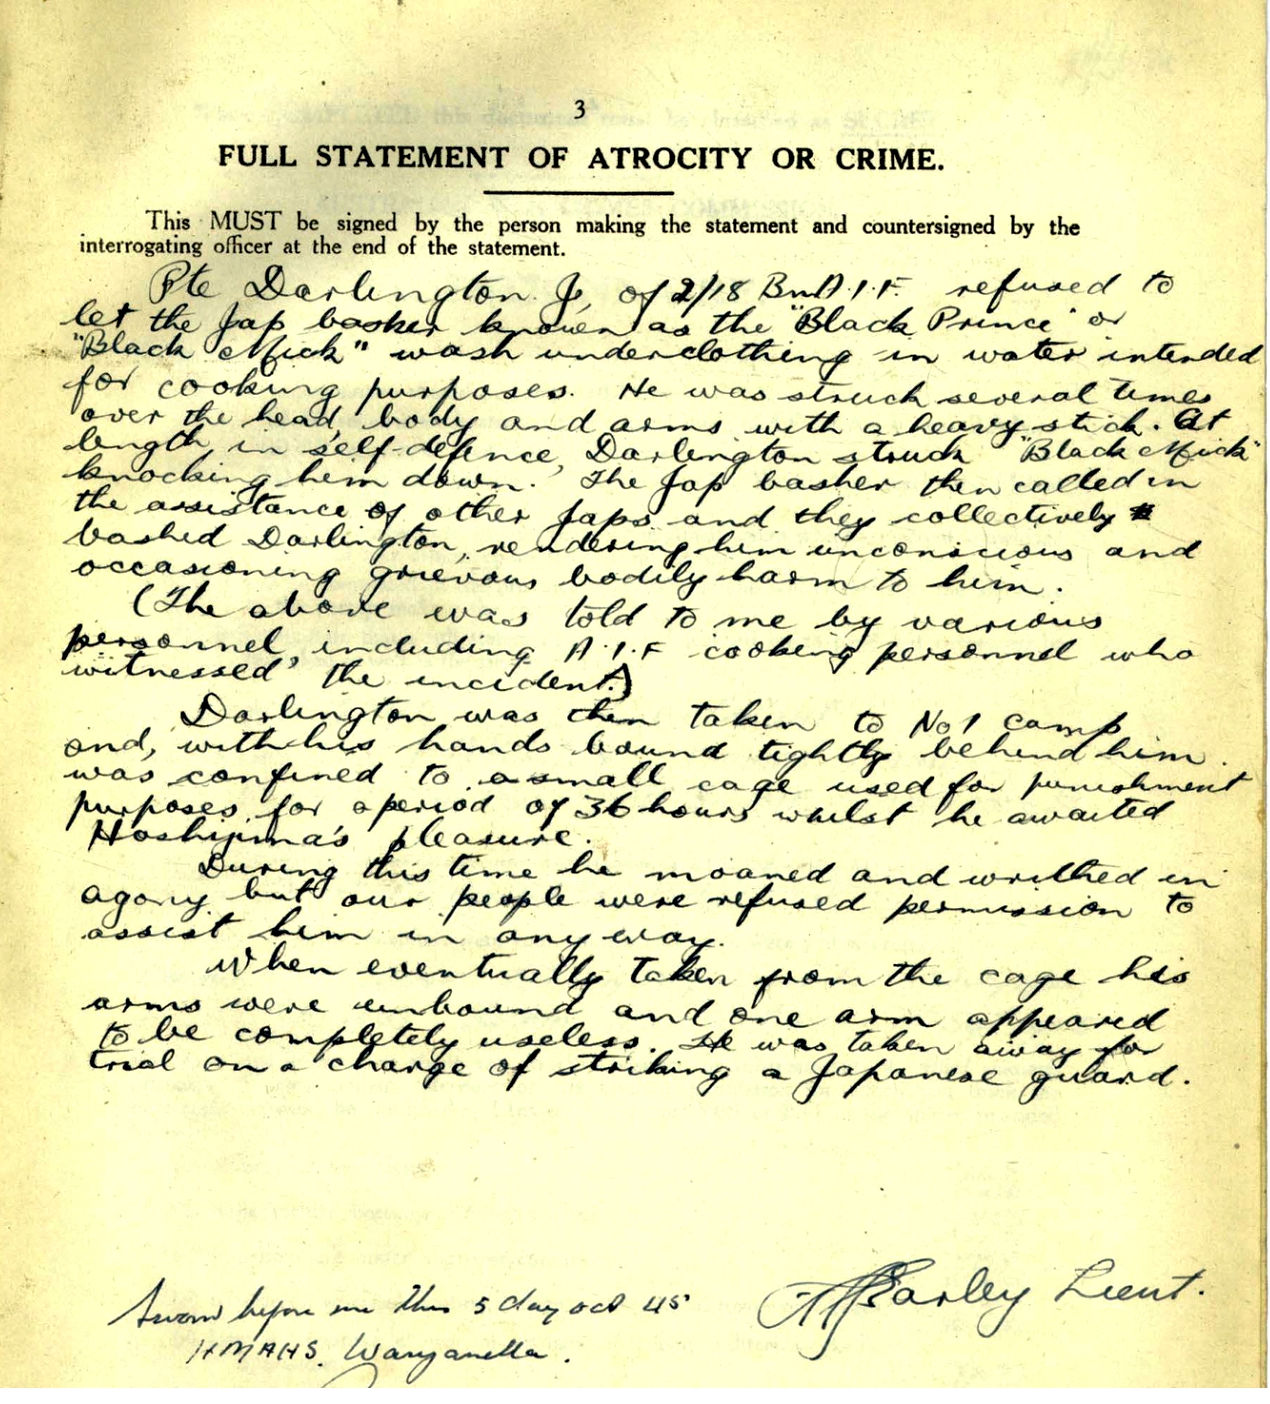 3
FULL STATEMENT OF ATROCITY OR CRIME.
This MUST be signed by the person making the statement and countersigned by the
interrogating officer at the end of the statement.
Pte Darlington J, of 2/18 Bn A.I.F. refused to
let the Jap basher known as the "Black Prince" or
"Black Mick" wash underclothing in water intended
for cooking purposes. He was struck several times
over the head, body and arms with a heavy stick. At
length, in self-defence, Darlington struck "Black Mick"
knocking him down. The Jap basher then called in
the assistance of other Japs and they collectively
bashed Darlington, rendering him unconscious and
occasioning grievous bodily harm to him.
(The above was told to me by various
personnel, including A.I.F cooking personnel who
witnessed the incident.)
Darlington was then taken to No 1 camp
and, with his hands bound tightly behind him
was confined to a small cage used for punishment
purposes, for a period of 36 hours whilst he awaited
Hoshijima's pleasure.
During this time he moaned and writhed in
agony but our people were refused permission to
assist him in any way.
When eventually taken from the cage his
arms were unbound and one arm appeared
to be completely useless. He was taken away for
trial on a charge of striking a Japanese guard.
Sworn before me this 5 day Oct 45
HMAHS. Wanganella.
Lieut.